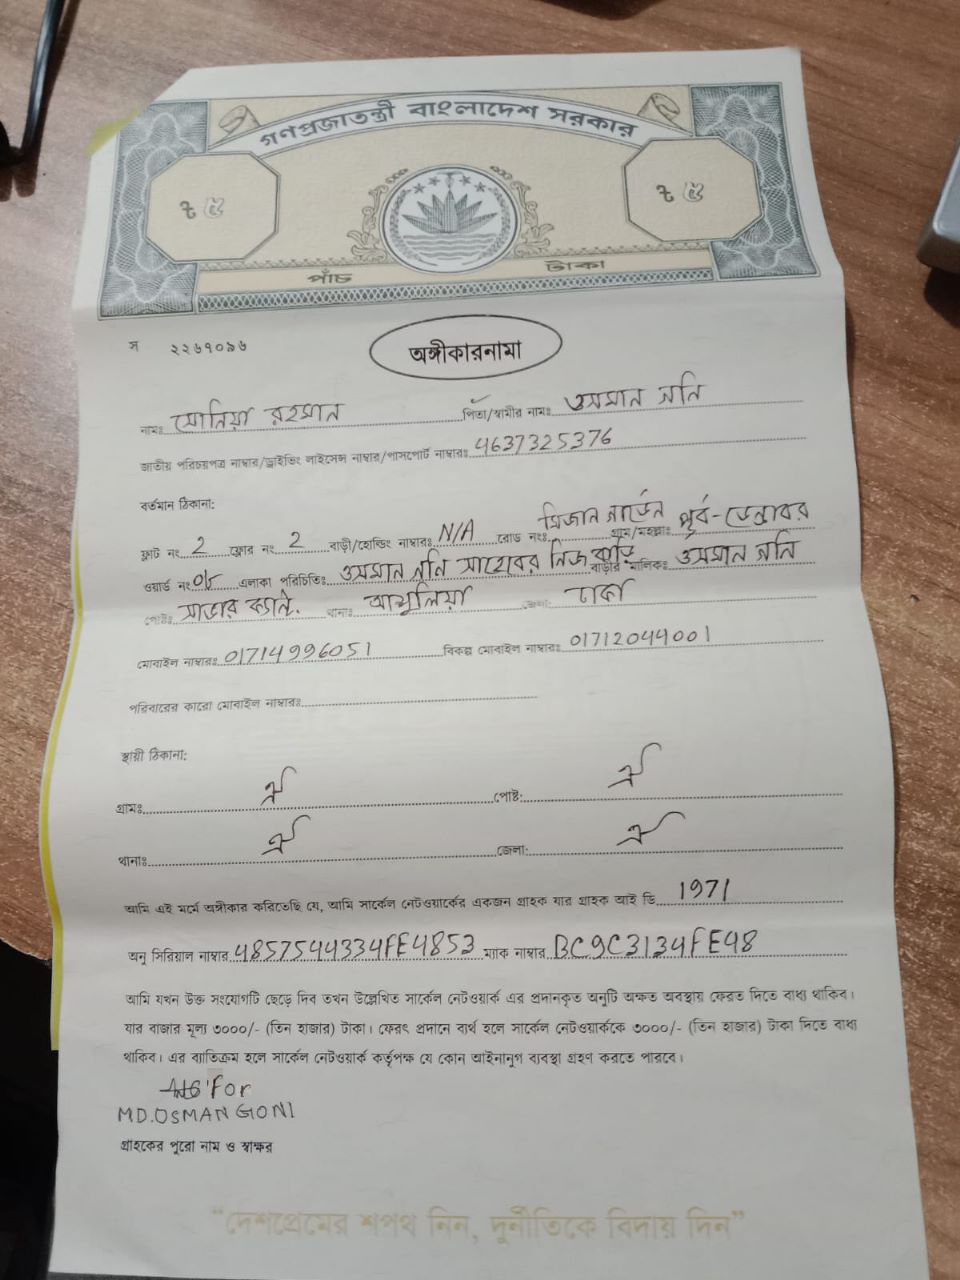 গণপ্রজাতন্ত্রী বাংলাদেশ সরকার
৳ ৫ ৳ ৫
পাঁচ টাকা
স ২২৬৭০৯৬
অঙ্গীকারনামা
নামঃ সোনিয়া রহমান পিতা/স্বামীর নামঃ ওসমান গনি
জাতীয় পরিচয়পত্র নাম্বার/ড্রাইভিং লাইসেন্স নাম্বার/পাসপোর্ট নাম্বারঃ 4637325376
বর্তমান ঠিকানা:
ফ্লাট নং 2 ফ্লোর নং 2 বাড়ী/হোল্ডিং নাম্বারঃ N/A রোড নংঃ মিজান গার্ডেন গ্রাম/মহল্লাঃ পূর্ব-ডেন্ডাবর
ওয়ার্ড নংঃ ০৮ এলাকা পরিচিতিঃ ওসমান গনি সাহেবের নিজ বাড়ি বাড়ীর মালিকঃ ওসমান গনি
পোষ্টঃ সাভার ক্যান্ট. থানাঃ আশুলিয়া জেলা: ঢাকা
মোবাইল নাম্বারঃ 01714996051 বিকল্প মোবাইল নাম্বারঃ 01712044001
পরিবারের কারো মোবাইল নাম্বারঃ
স্থায়ী ঠিকানা:
গ্রামঃ ঐ পোষ্ট: ঐ
থানাঃ ঐ জেলা: ঐ
আমি এই মর্মে অঙ্গীকার করিতেছি যে, আমি সার্কেল নেটওয়ার্কের একজন গ্রাহক যার গ্রাহক আই ডি 1971
অনু সিরিয়াল নাম্বার 4857544334FE4853 ম্যাক নাম্বার BC9C3134FE48
আমি যখন উক্ত সংযোগটি ছেড়ে দিব তখন উল্লেখিত সার্কেল নেটওয়ার্ক এর প্রদানকৃত অনুটি অক্ষত অবস্থায় ফেরত দিতে বাধ্য থাকিব।
যার বাজার মূল্য ৩০০০/- (তিন হাজার) টাকা। ফেরৎ প্রদানে ব্যর্থ হলে সার্কেল নেটওয়ার্ককে ৩০০০/- (তিন হাজার) টাকা দিতে বাধ্য
থাকিব। এর ব্যতিক্রম হলে সার্কেল নেটওয়ার্ক কর্তৃপক্ষ যে কোন আইনানুগ ব্যবস্থা গ্রহণ করতে পারবে।
For
MD.OSMAN GONI
গ্রাহকের পুরো নাম ও স্বাক্ষর
“দেশপ্রেমের শপথ নিন, দুর্নীতিকে বিদায় দিন”